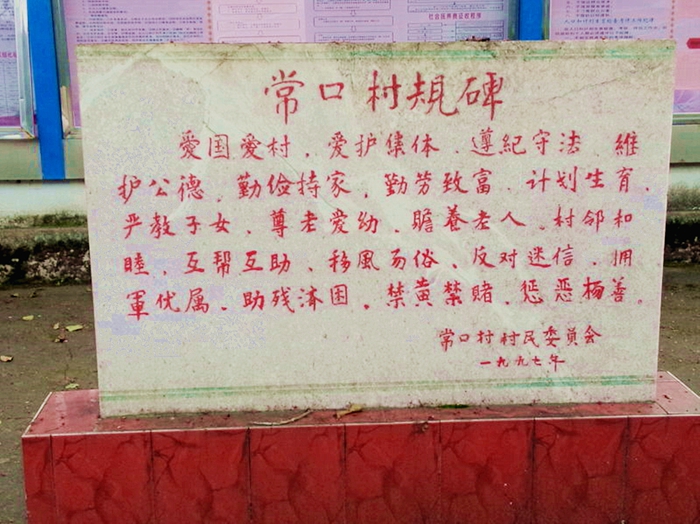 常口村規碑
爱国爱村、爱护集体、遵紀守法、維
护公德、勤俭持家、勤劳致富、计划生育、
严教子女、尊老爱幼、贍養老人、村邻和
睦、互帮互助、移風易俗、反对迷信、拥
軍优属、助残济困、禁黄禁赌、惩恶杨善。
常口村村民委員会
一九九七年